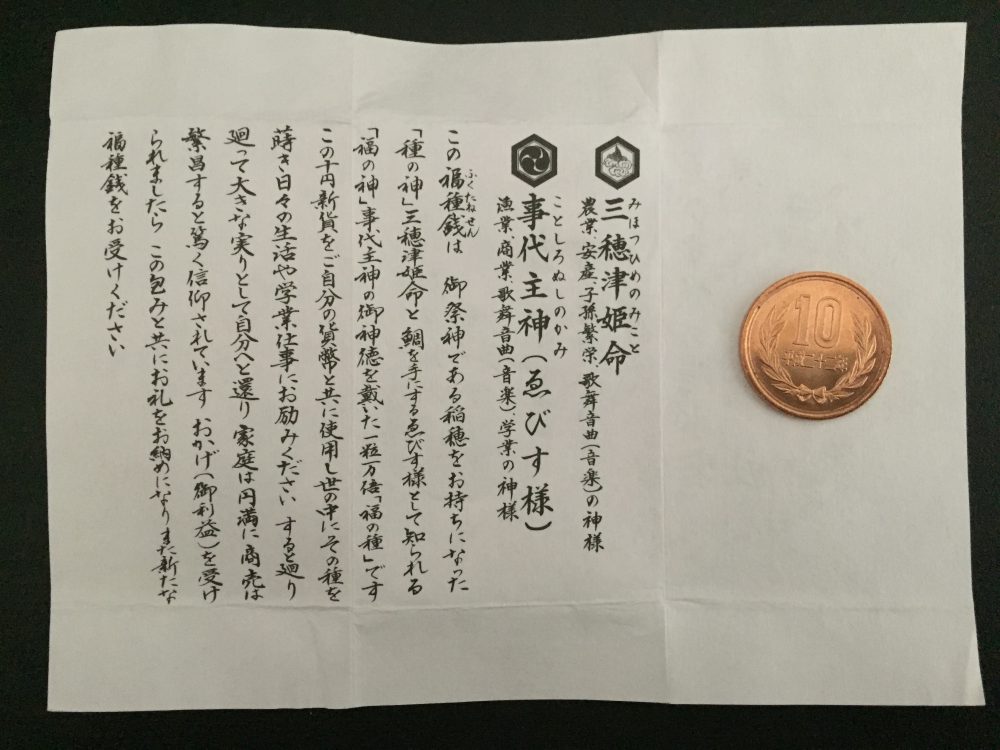 三穂津姫命
みほつひめのみこと
農業、安産、子孫繁栄、歌舞音曲(音楽)の神様
事代主神(ゑびす様)
ことしろぬしのかみ
漁業、商業、歌舞音曲(音楽)、学業の神様
この福種銭は 御祭神である稲穂をお持ちになった
ふくたねせん
「種の神」三穂津姫命と 鯛を手にするゑびす様として知られる
「福の神」事代主神の御神徳を戴いた 一粒万倍「福の種」です
この十円新貨をご自分の貨幣と共に使用し世の中にその種を
蒔き日々の生活や学業仕事にお励みください すると廻り
廻って大きな実りとして自分へと還り 家庭は円満に 商売は
繁昌すると篤く信仰されています おかげ(御利益)を受け
られましたら この包みと共にお礼をお納めになりまた新たな
福種銭をお受けください
10
平成二十二年